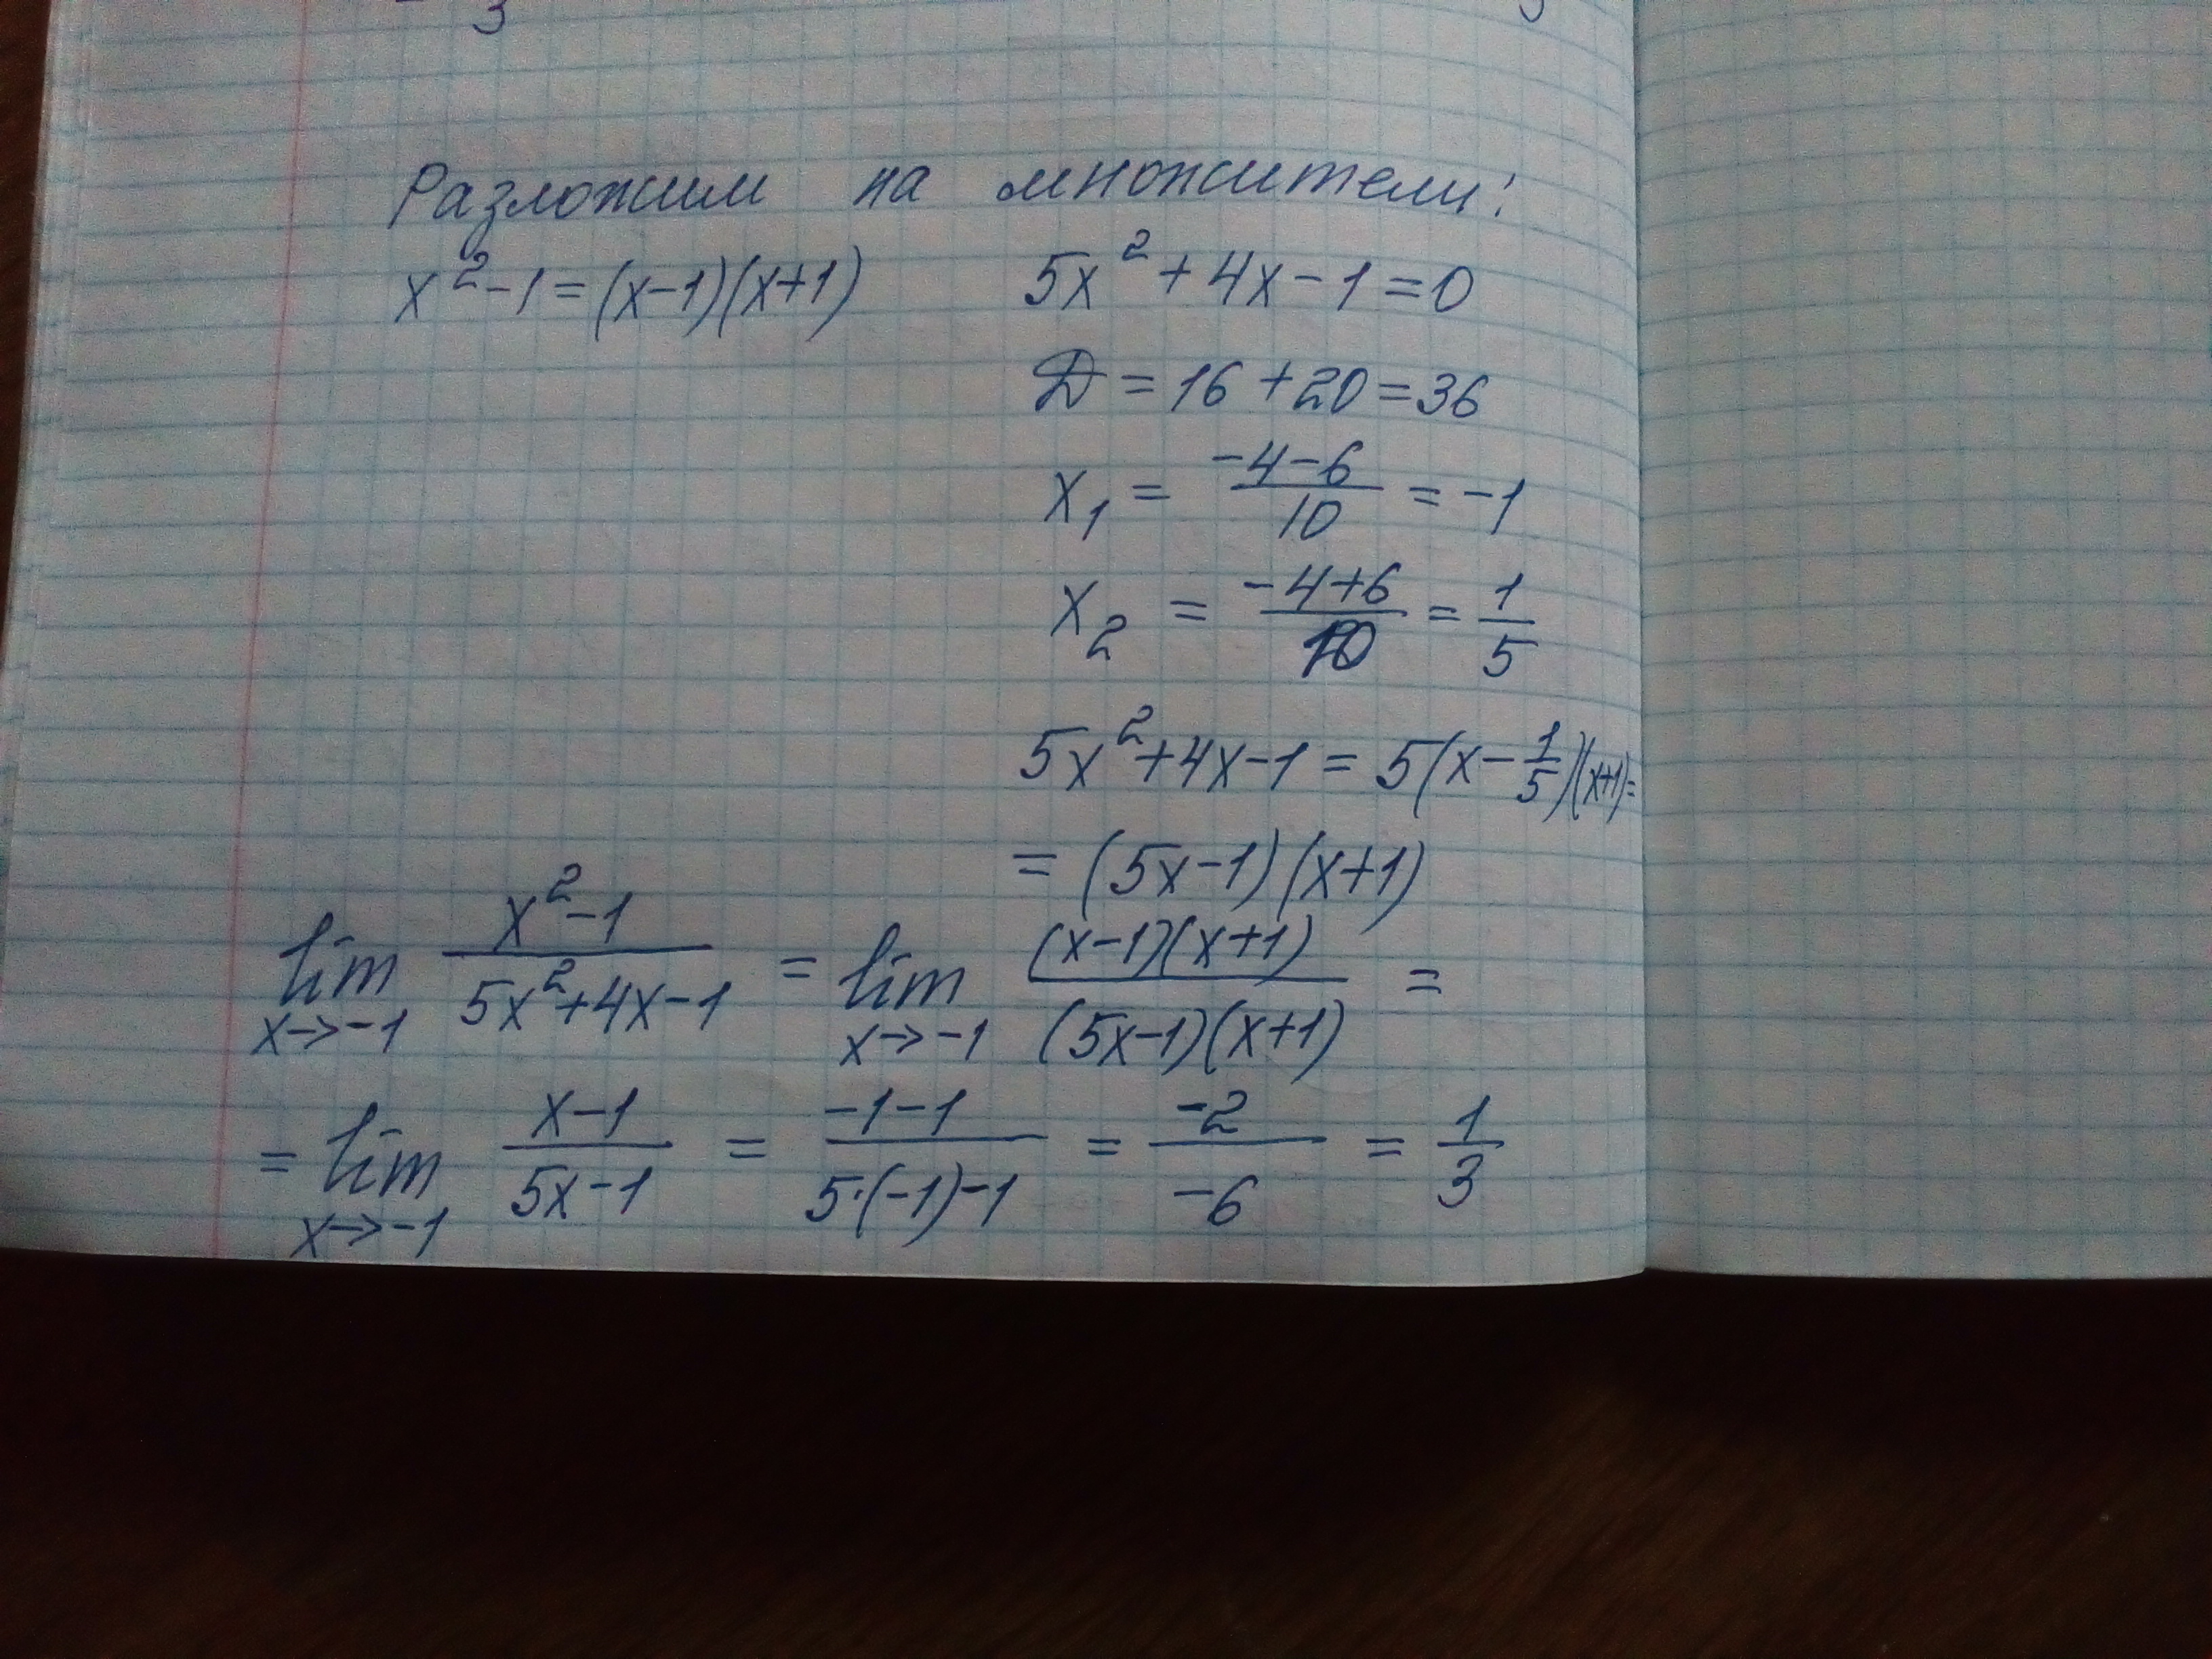 3
Разложим на множители:
x²-1=(x-1)(x+1)
5x²+4x-1=0
D=16+20=36
x₁ = (-4-6)/10 = -1
x₂ = (-4+6)/10 = 1/5
5x²+4x-1 = 5(x-1/5)(x+1)=
= (5x-1)(x+1)
lim x→-1 (x²-1)/(5x²+4x-1) = lim x→-1 ((x-1)(x+1))/((5x-1)(x+1)) =
= lim x→-1 (x-1)/(5x-1) = (-1-1)/(5·(-1)-1) = (-2)/(-6) = 1/3